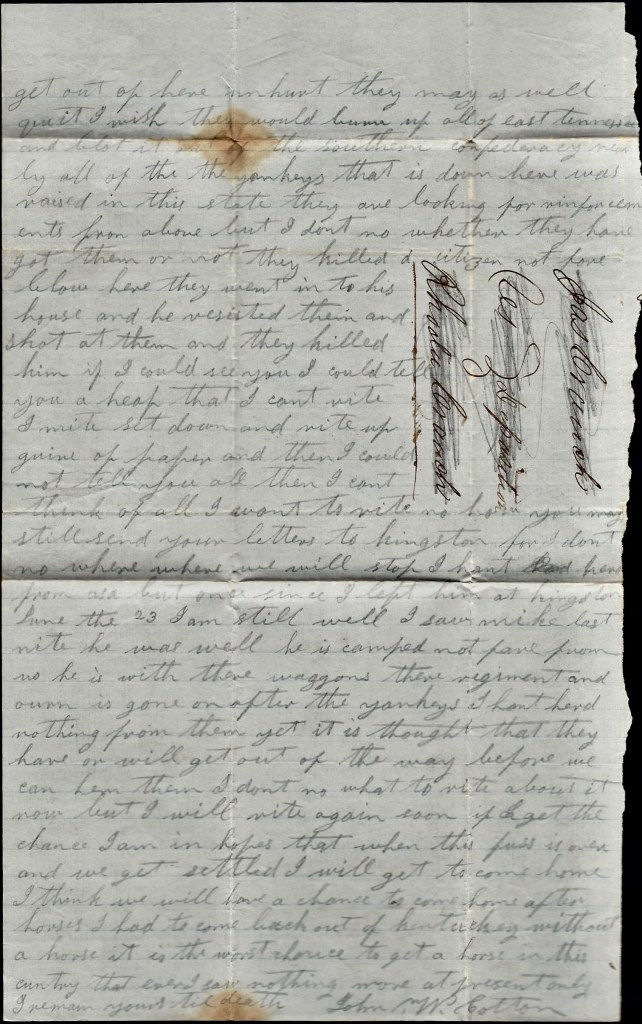 get out of here unhurt they may as well
quit I wish they would burn up all of east tennessee
and blot it the southern confederacy
by all of the the yankeys that is down here was
raised in this state they are looking for rinforcem
ents from above but I dont no whether they have
got them or not they killed a sitizen not fare
blow here they went in to his
house and he resisted them and
shot at them and they killed
him if I could see you I could tell
you a heap that I cant rite
I mite set down and rite up
quire of paper and then I could
not tell you all then I cant
think of all I want to rite no how you may
still send your letters to kingston for I dont
no where where we will stop I hant had here
from asa but once since I left him at kingston
June the 23 I am still well I saw mike last
nite he was well he is camped not fare from
us he is with there waggons there regiment and
ourn is gone on after the yankeys I hant herd
nothing from them yet it is thought that they
have or will get out of the way before we
can hem them I dont no what to rite about it
now but I will rite again soon if I get the
chance I am in hopes that when this fuss is over
and we get settled I will get to come home
I think we will have a chance to come home after
horses I had to come back out of kentuckey without
a horse it is the worst chance to get a horse in this
cuntry that ever I saw nothing more at present only
I remain yours til death John W. Cotton